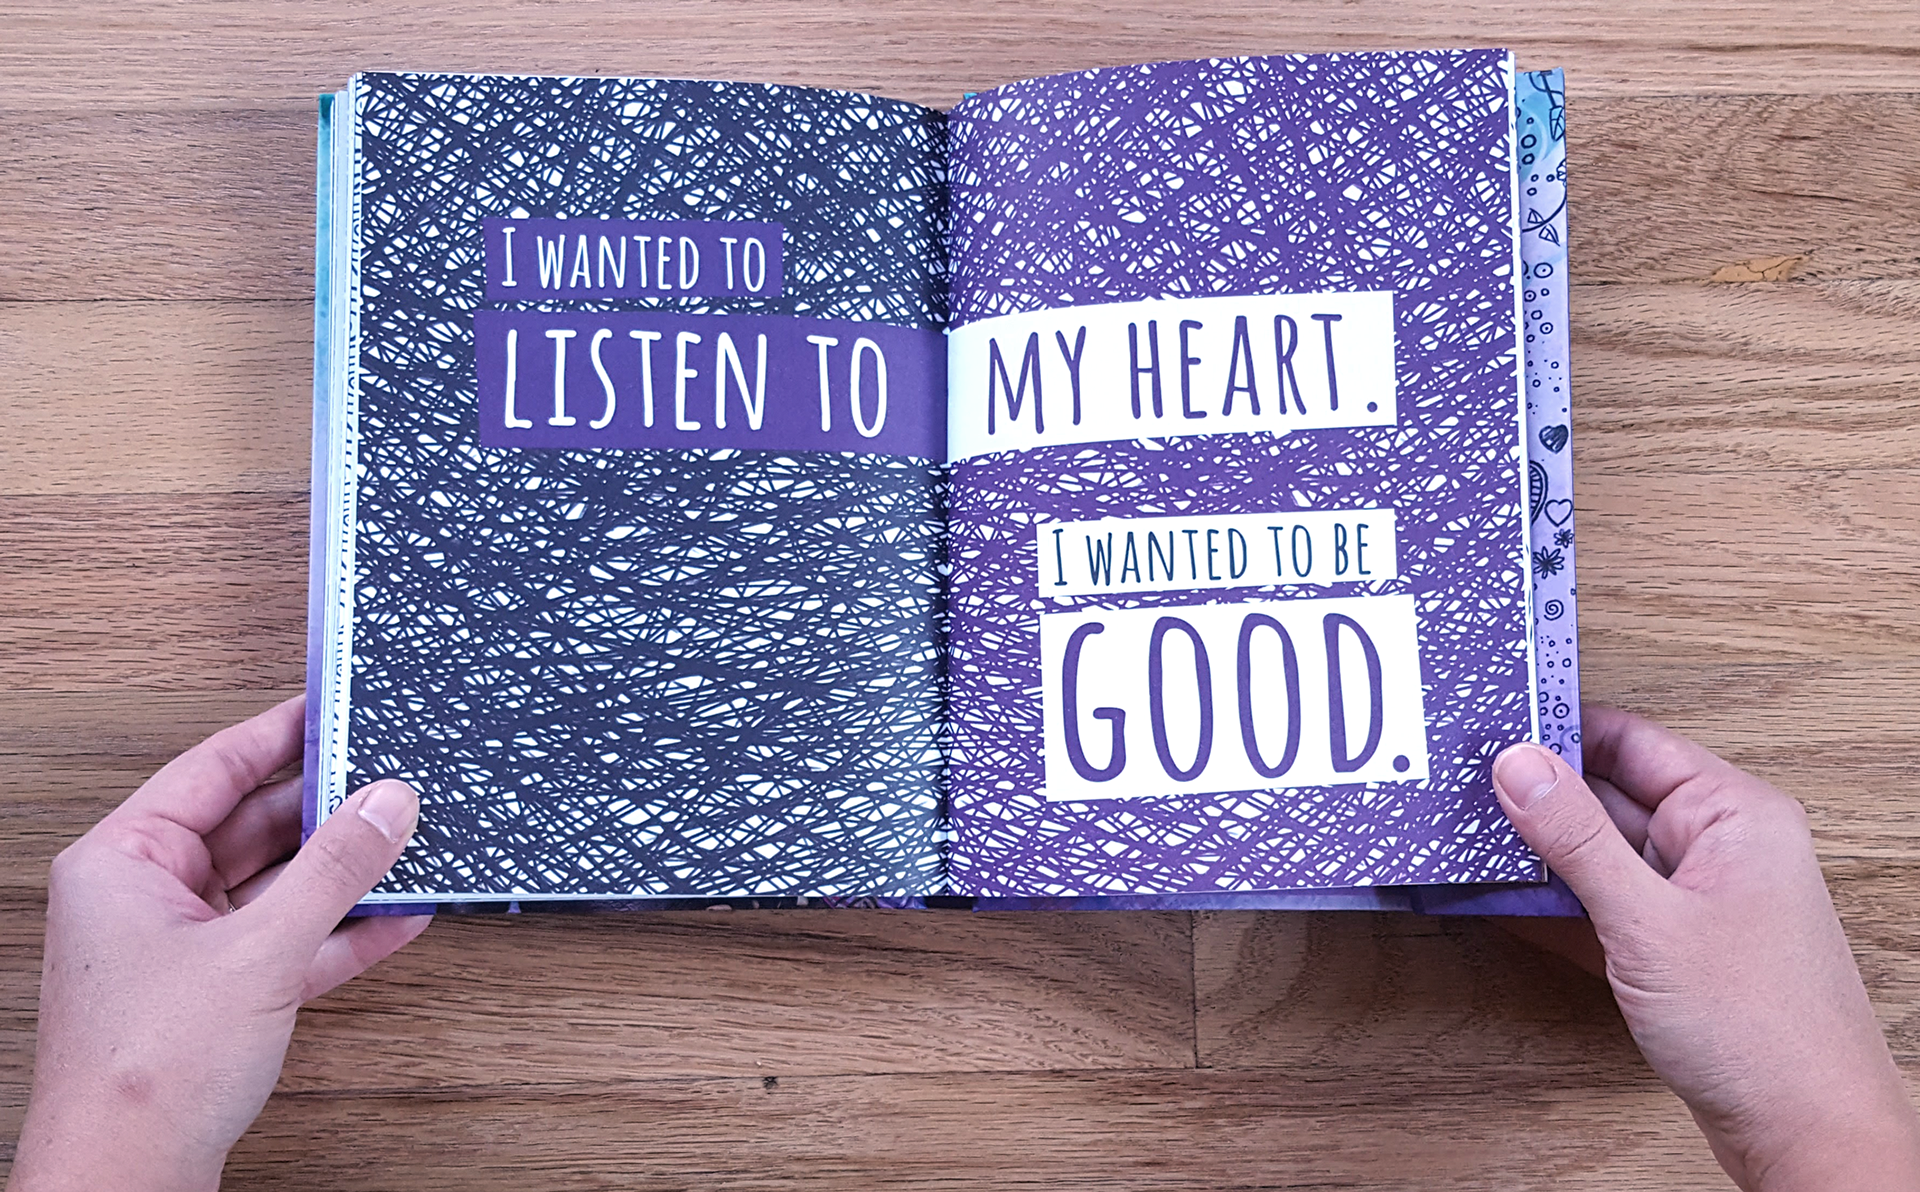 I WANTED TO
LISTEN TO MY HEART.
I WANTED TO BE
GOOD.